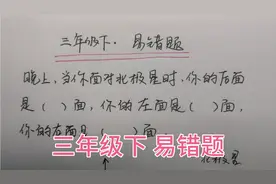 三年级下. 易错题
晚上,当你面对北极星时,你的后面
是( )面,你的左面是( )面,
你的右面是( )面.
三年级下 易错题
北极星